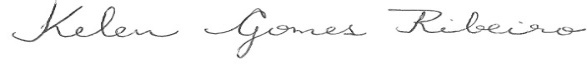 Kelen Gomes Ribeiro